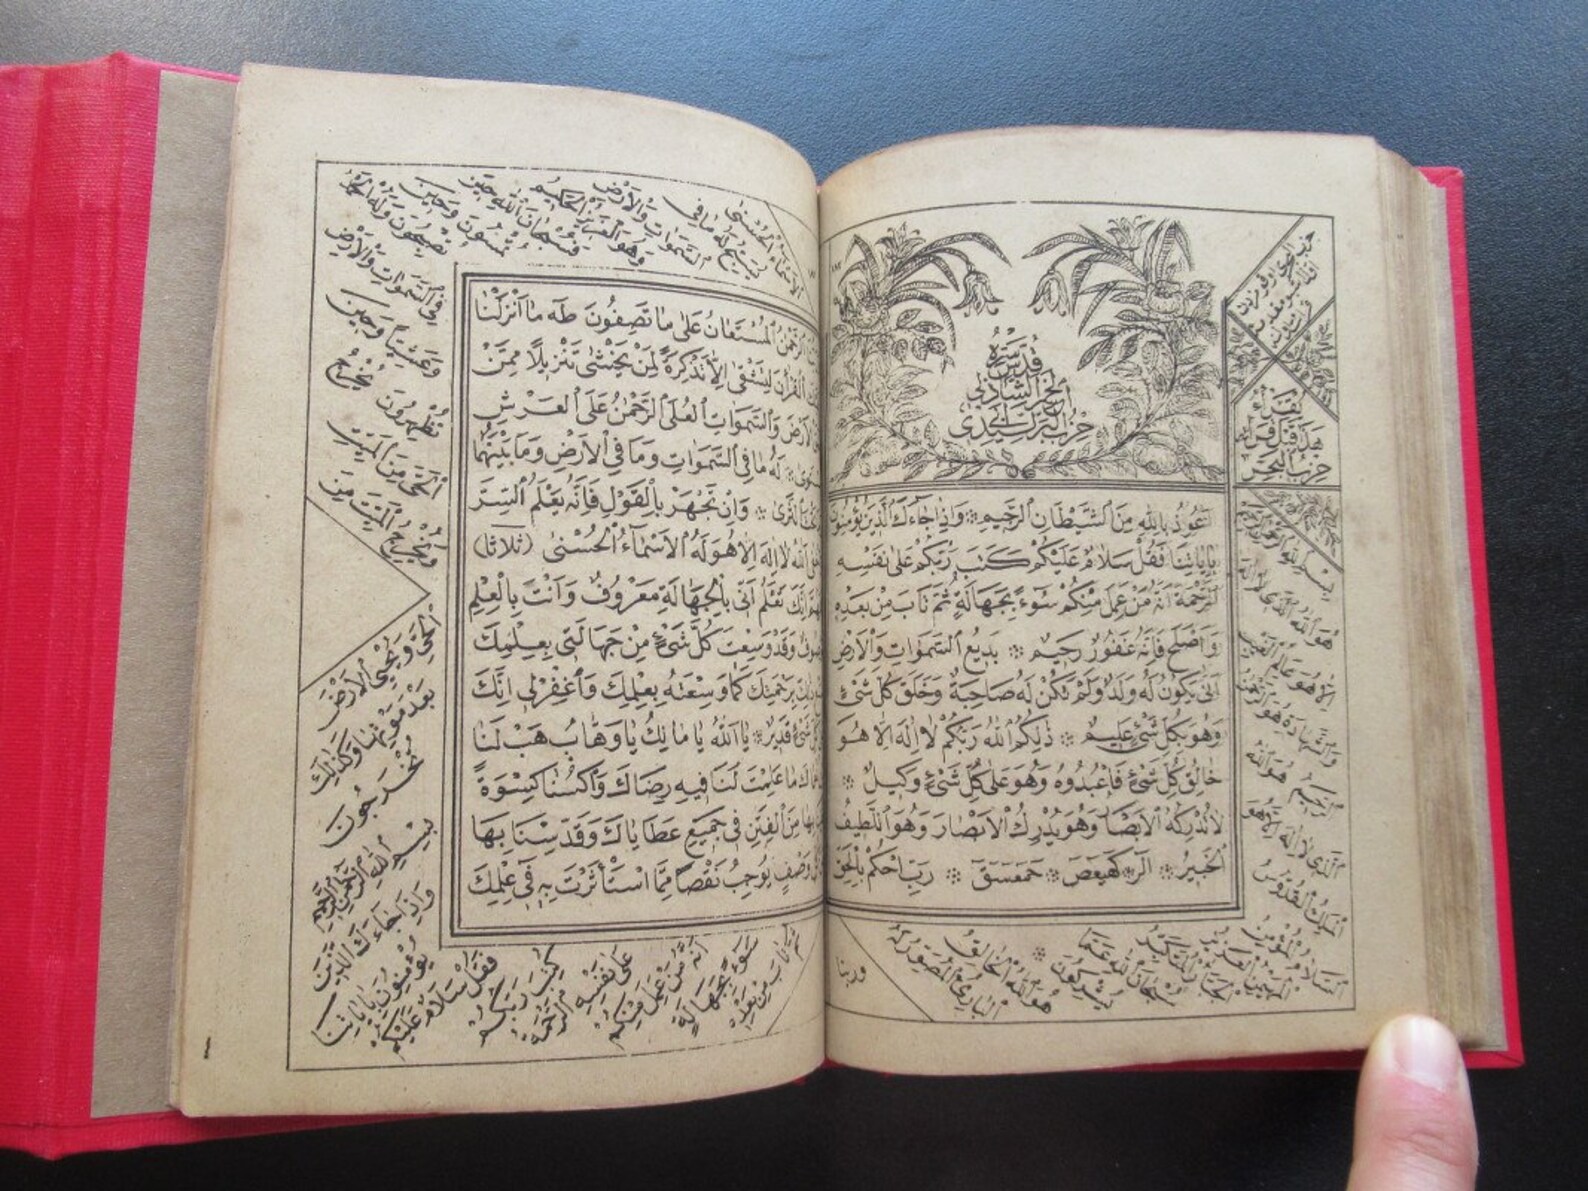 قدس سره
الحسن الشاذلي
حزب البر لسيدي
اعوذ بالله من الشيطان الرجيم ۞ واذا جاءك الذين يؤمنون
باياتنا فقل سلام عليكم كتب ربكم على نفسه
الرحمة انه من عمل منكم سوء بجهالة ثم تاب من بعده
واصلح فانه غفور رحيم ۞ بديع السموات والارض
انى يكون له ولد ولم تكن له صاحبة وخلق كل شئ
وهو بكل شئ عليم ۞ ذلكم الله ربكم لا اله الا هو
خالق كل شئ فاعبدوه وهو على كل شئ وكيل ۞
لا تدركه الابصار وهو يدرك الابصار وهو اللطيف
الخبير ۞ الر ۞ كهيعص ۞ حمعسق ۞ رب احكم بالحق
يقرأ
هذا قبل قرائة
حزب البحر
بسم الله الرحمن الرحيم
هو الله الذى لا اله
الا هو عالم الغيب
والشهادة هو الرحمن
الرحيم هو الله
الذى لا اله الا هو
الملك القدوس
السلام المؤمن
المهيمن العزيز
الجبار المتكبر
سبحان الله عما
يشركون ۞
هو الله الخالق
البارئ المصور له
وربنا
الرحمن المستعان على ما تصفون طه ما انزلنا
القرأن لتشقى الا تذكرة لمن يخشى تنزيلا ممن
الارض والسموات العلى الرحمن على العرش
له ما فى السموات وما فى الارض وما بينهما
الثرى ۞ وان تجهر بالقول فانه يعلم السر
الله لا اله الا هو له الاسماء الحسنى (ثلاثا)
انك تعلم انى بالجهالة معروف وانت بالعلم
وقد وسعت كل شئ من جهالتى بعلمك
برحمتك كما وسعته بعلمك واغفر لى انك
شئ قدير ۞ يا الله يا مالك يا وهاب هب لنا
ما علمت لنا فيه رضاك واكسنا كسوة
بها من الفتن فى جميع عطاياك وقدسنا بها
وصف يوجب نقصا مما استأثرت به فى علمك
الاسماء الحسنى
يسبح له ما فى
السموات والارض
وهو العزيز الحكيم
فسبحان الله حين
تمسون وحين
تصبحون وله الحمد
فى السموات والارض
وعشيا وحين
تظهرون يخرج
الحى من الميت
ويخرج الميت من
الحى ويحيى الارض
بعد موتها وكذلك
تخرجون
بسم الله الرحمن الرحيم
واذا جاءك الذين
يؤمنون باياتنا
فقل سلام عليكم
كتب ربكم
على نفسه الرحمة
انه من عمل منكم
سوء بجهالة
ثم تاب من بعده